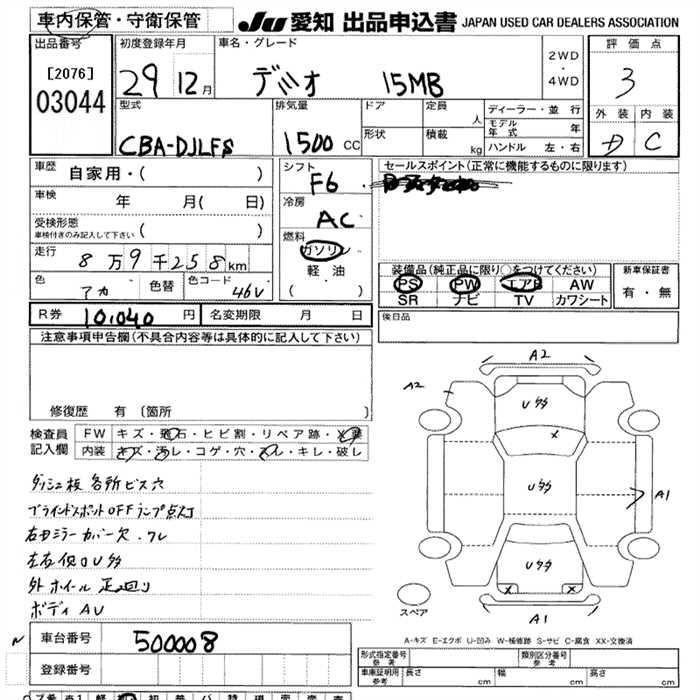 車内保管・守衛保管 JU 愛知 出品申込書 JAPAN USED CAR DEALERS ASSOCIATION
出品番号 初度登録年月 車名・グレード 評価点
[2076] 03044 29 12月 デミオ 15MB 2WD・4WD 3
型式 排気量 ドア 定員 人 ディーラー・並行 外装 内装
CBA-DJLFS 1500 CC 形状 積載 kg モデル年式 年 D C
ハンドル 左・右
車歴 自家用・( ) シフト F6 セールスポイント(正常に機能するものに限ります)
車検 年 月( 日) 冷房 AC
受検形態 車検付きのみ記入して下さい ( ) 燃料 ガソリン
走行 8万9千258km 軽油
色 アカ 色替 色コード 46V ( )
装備品(純正品に限り○をつけてください) 新車保証書
PS PW エアB AW 有・無
SR ナビ TV カワシート
R券 10,040 円 名変期限 月 日 後日品
注意事項申告欄(不具合内容等は具体的に記入して下さい)
修復歴 有 〔箇所 〕
検査員記入欄 FW キズ・飛石・ヒビ割・リペア跡・X要
内装 キズ・汚レ・コゲ・穴・スレ・キレ・破レ
ダッシュ板 各所ビス穴
ブラインドスポットOFFランプ点灯
右ドミラーカバー欠.ワレ
左右側U多
外ホイール 正廻り
ボディAU
A2
A2
U多
X
U多
A1
U多
X X
A1
スペア
A-キズ E-エクボ U-凹み W-補修跡 S-サビ C-腐食 XX-交換済
N 車台番号 500008
登録番号
形式指定番号 参考 類別区分番号 参考
車庫証明 参考 長さ cm 幅 cm 高さ cm